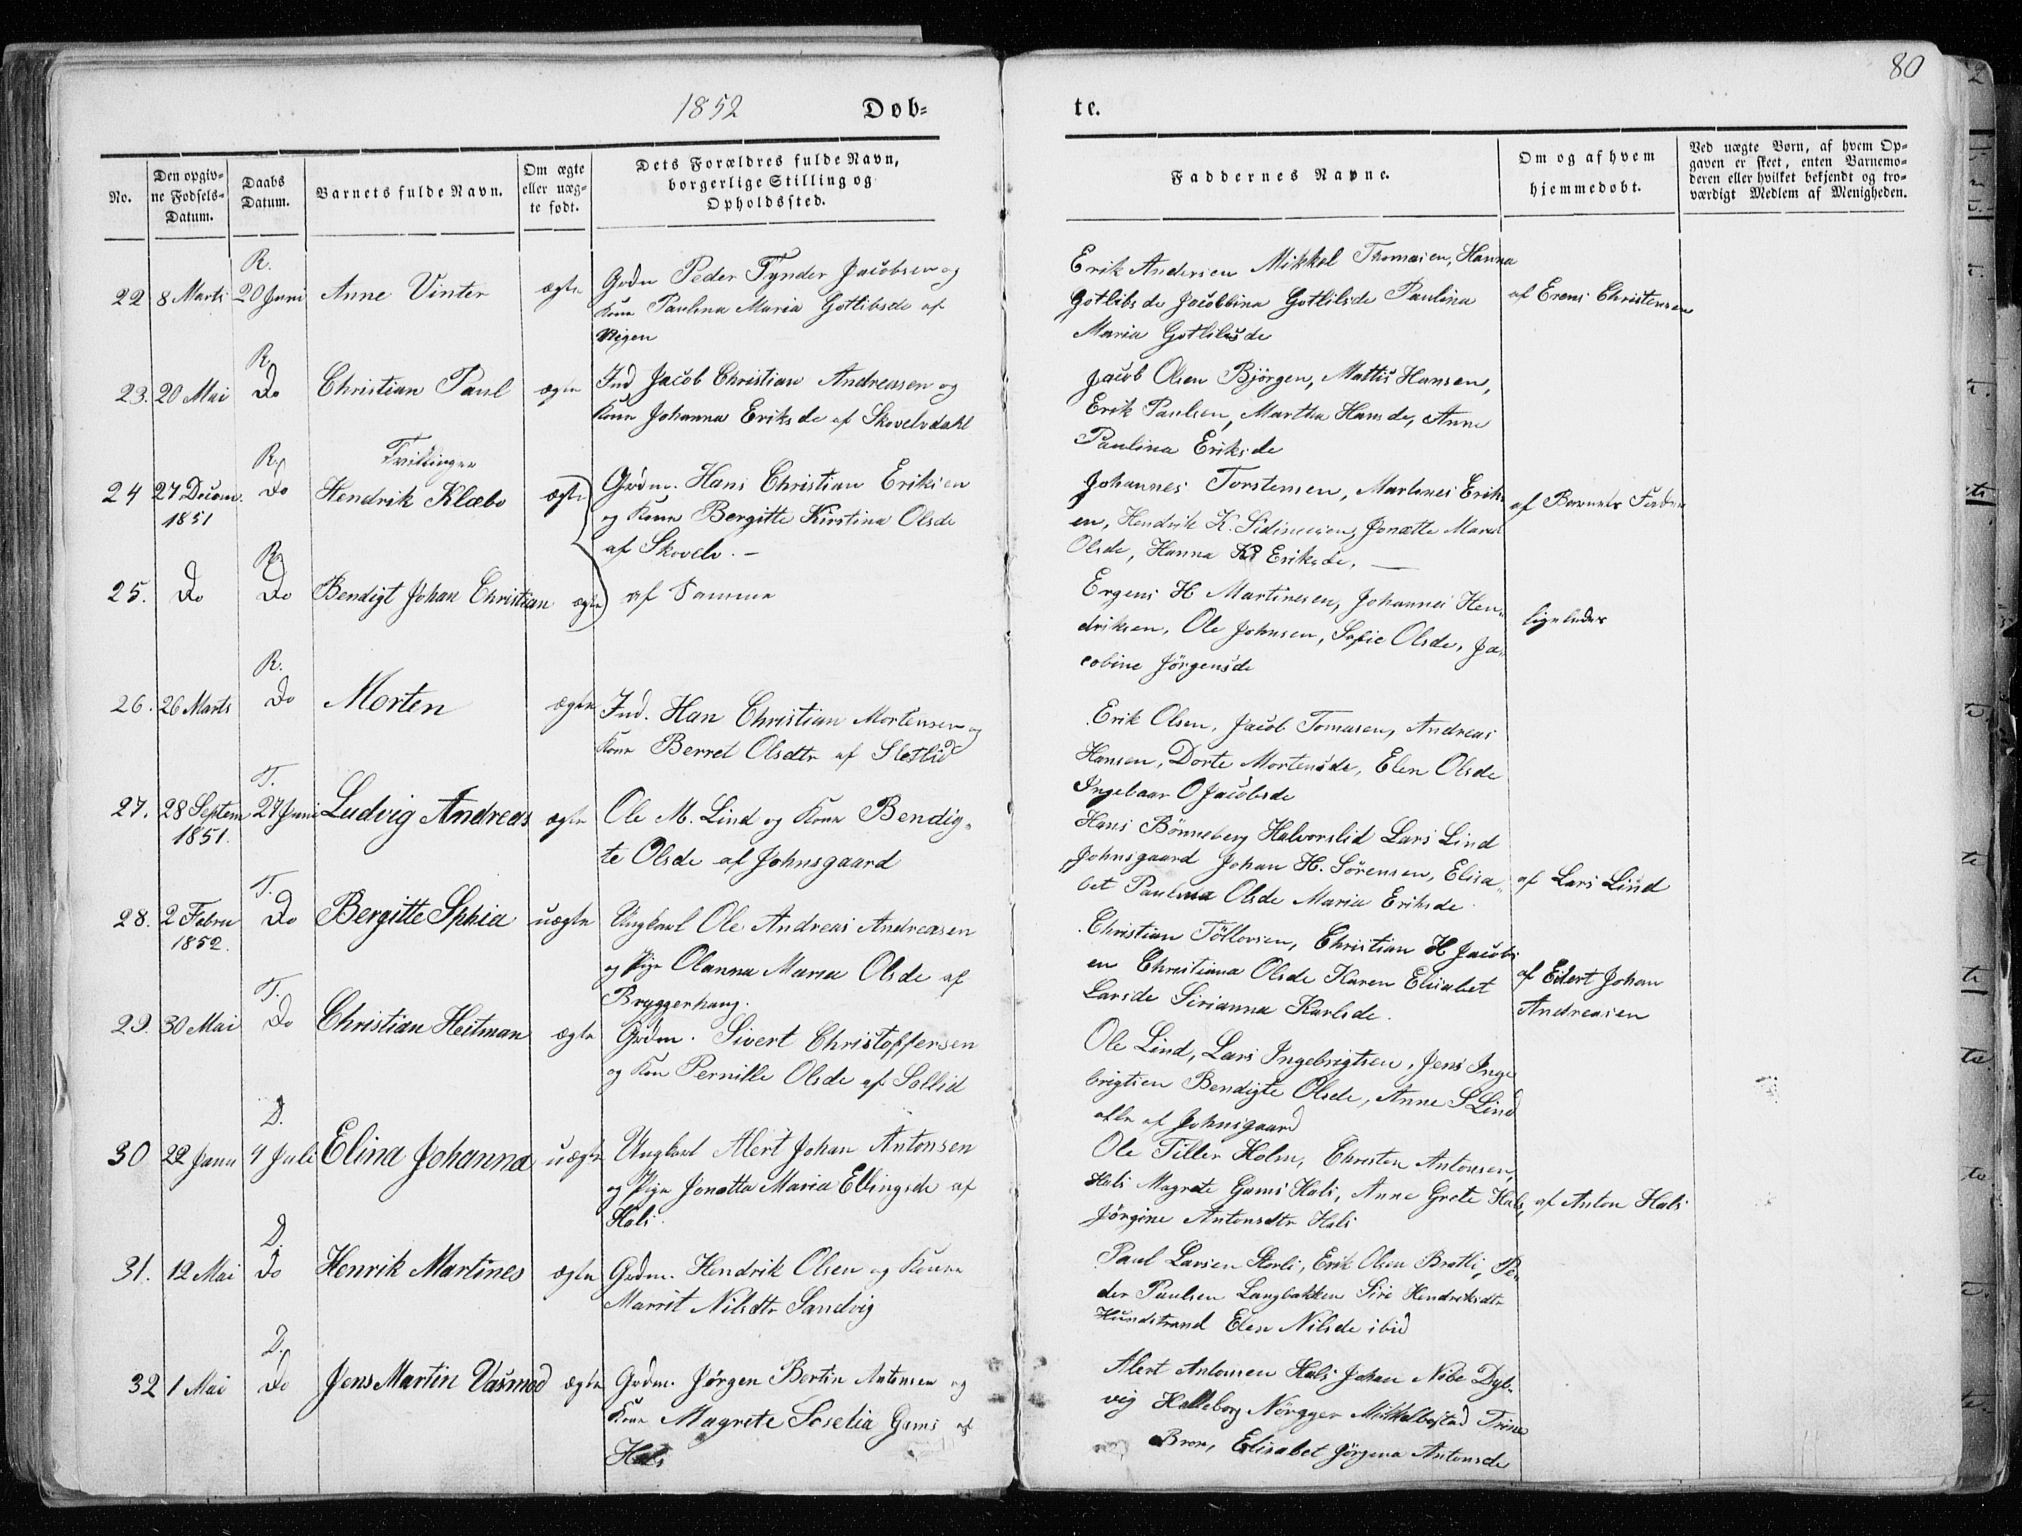 80
1852 Døb-
te.
No.
Den opgiv-
ne Fødsels-
Datum.
Daabs
Datum.
Barnets fulde Navn.
Om ægte
eller uæg-
te født.
Dets Forældres fulde Navn,
borgerlige Stilling og
Opholdssted.
Faddernes Navne.
Om og af hvem
hjemmedøbt.
Ved uægte Børn, af hvem Op-
gaven er skeet, enten Barnemo-
deren eller hvilket bekjendt og tro-
værdigt Medlem af Menigheden.
R.
22 8 Marts 20 Juni Anne Vinter ægte Grdm Peder Tynder Jacobsen og
Kone Paulina Maria Gotlibsde af
Erik Andersen Mikkel Thomasen, Hanna
Gotlibsde Jacobbina Gotlibsde Paulina
Maria Gotlibsde
af Erens Christensen
R.
23. 20 Mai Do Christian Paul ægte Ind Jacob Christian Andreasen og
Kone Johanna Eriksde af Skovelvdahl
Jacob Olsen Bjørgen, Mattis Hansen,
Erik Paulsen, Martha Hansde, Anne
Paulina Eriksde
R. Tvillinger
24 27 Decem. Do Hendrik Klæbo ægte Grdm. Hans Christian Eriksen
1851 og Kone Bergitte Kirstina Olsde
af Skovelv. —
Johannes Torstensen, Martines Eriks
en, Hendrik K. Sidinusen, Jonætte Maria
Olsde, Hanna Eriksde, —
af Barnets Fader
R.
25. Do Do Bendigt Johan Christian ægte af Samme
Ergens H Martinesen, Johannes Hen-
driksen, Ole Johnsen, Sofie Olsde, Ja-
cobine Jørgensde
ligeledes
R.
26. 26 Marts Do Morten ægte Ind. Han Christian Mortensen og
Kone Berret Olsdtr af Sletlid
Erik Olsen, Jacob Tomasen, Andreas
Hansen, Dorte Mortensde, Elen Olsde
Ingebaar O Jacobsde
T.
27. 28 Septem 27 Juni Ludvig Andreas ægte Ole M. Lind og Kone Bendig-
1851. te Olsde af Johnsgaard
Hans Bønneberg Halvorslid Lars Lind
Johnsgaard Johan H. Sørensen, Elisa-
bet Paulina Olsde Maria Eriksde
af Lars Lind
T.
28. 2 Febru Do Bergitte Sphia uægte Ungkarl Ole Andreas Andreasen
1852. og Pige Olanna Maria Olsde af
Bryggerhaug.
Christian Tøllovsen, Christian H Jacobs
en Christiana Olsde Karen Elisabet
Larsde Sirianna Karlsde.
af Edert Johan
Andreasen
T.
29. 30 Mai Do Christian Heitman ægte Grdm. Sivert Christoffersen
og Kon Pernille Olsde af Sollid
Ole Lind, Lars Ingebrigtsen, Jens Inge
brigtsen Bendigte Olsde, Anne S Lind
alle af Johnsgaard
D.
30 22 Janu 4 Juli Elina Johanna uægte Ungkarl Alert Johan Antonsen
og Pige Jonetta Maria Ellingsde af
Hals.
Ole Tiller Holm, Christen Antonsen,
Hals Magrete Gams Hals, Anne Grete Hals,
Jørgine Antonsdtr Hals
af Anton Hals
D.
31. 12 Mai Do Henrik Martines ægte Grdm. Hendrik Olsen og Kone
Marrit Nilsdtr Sandvig
Paul Larsen Storli, Erik Olsen Bratli, Pe-
der Paulsen Langbakken Siri Hendriksdtr
Hundstrand Elen Nilsde ibid
D.
32 1 Mai Do Jens Martin Vasmod ægte Grdm. Jørgen Bertin Antonsen og
Kone Magrete Soselia Gams af
Hals
Alert Antonsen Hals Johan Nibe Dyb-
vig Helleborg Nørgger Mikkelbostad Trine
Bron, Elisabet Jørgina Antonsde